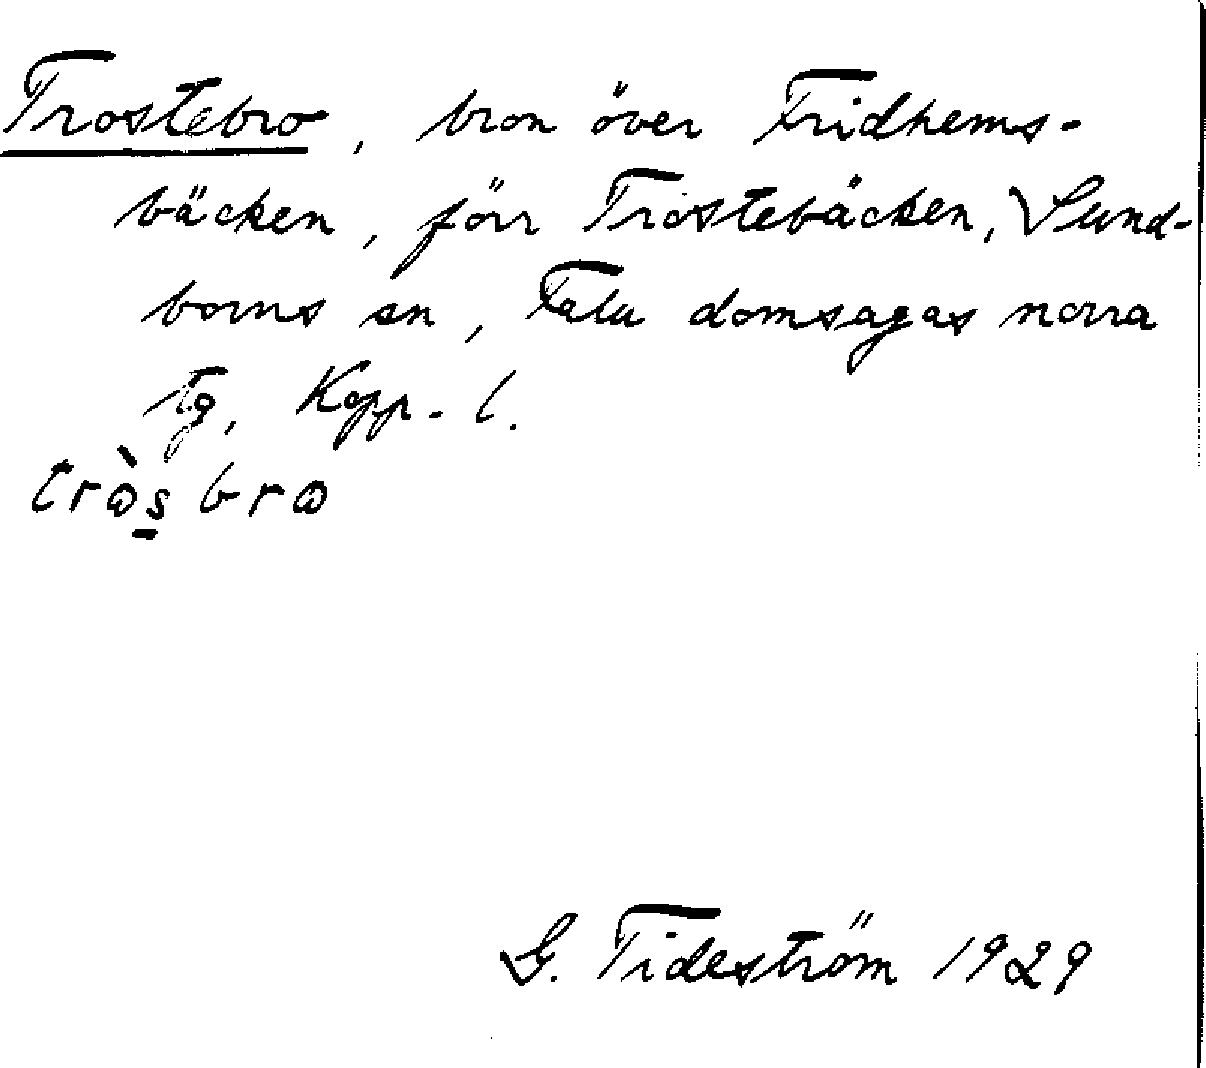 Trostebro, bron över Fridhems-
bäcken, förr Trostebäcken, Sund-
borns sn, Falu domsagas norra
tg, Kopp. l.
trɷ̀s̱ brɷ
G. Tideström 1929